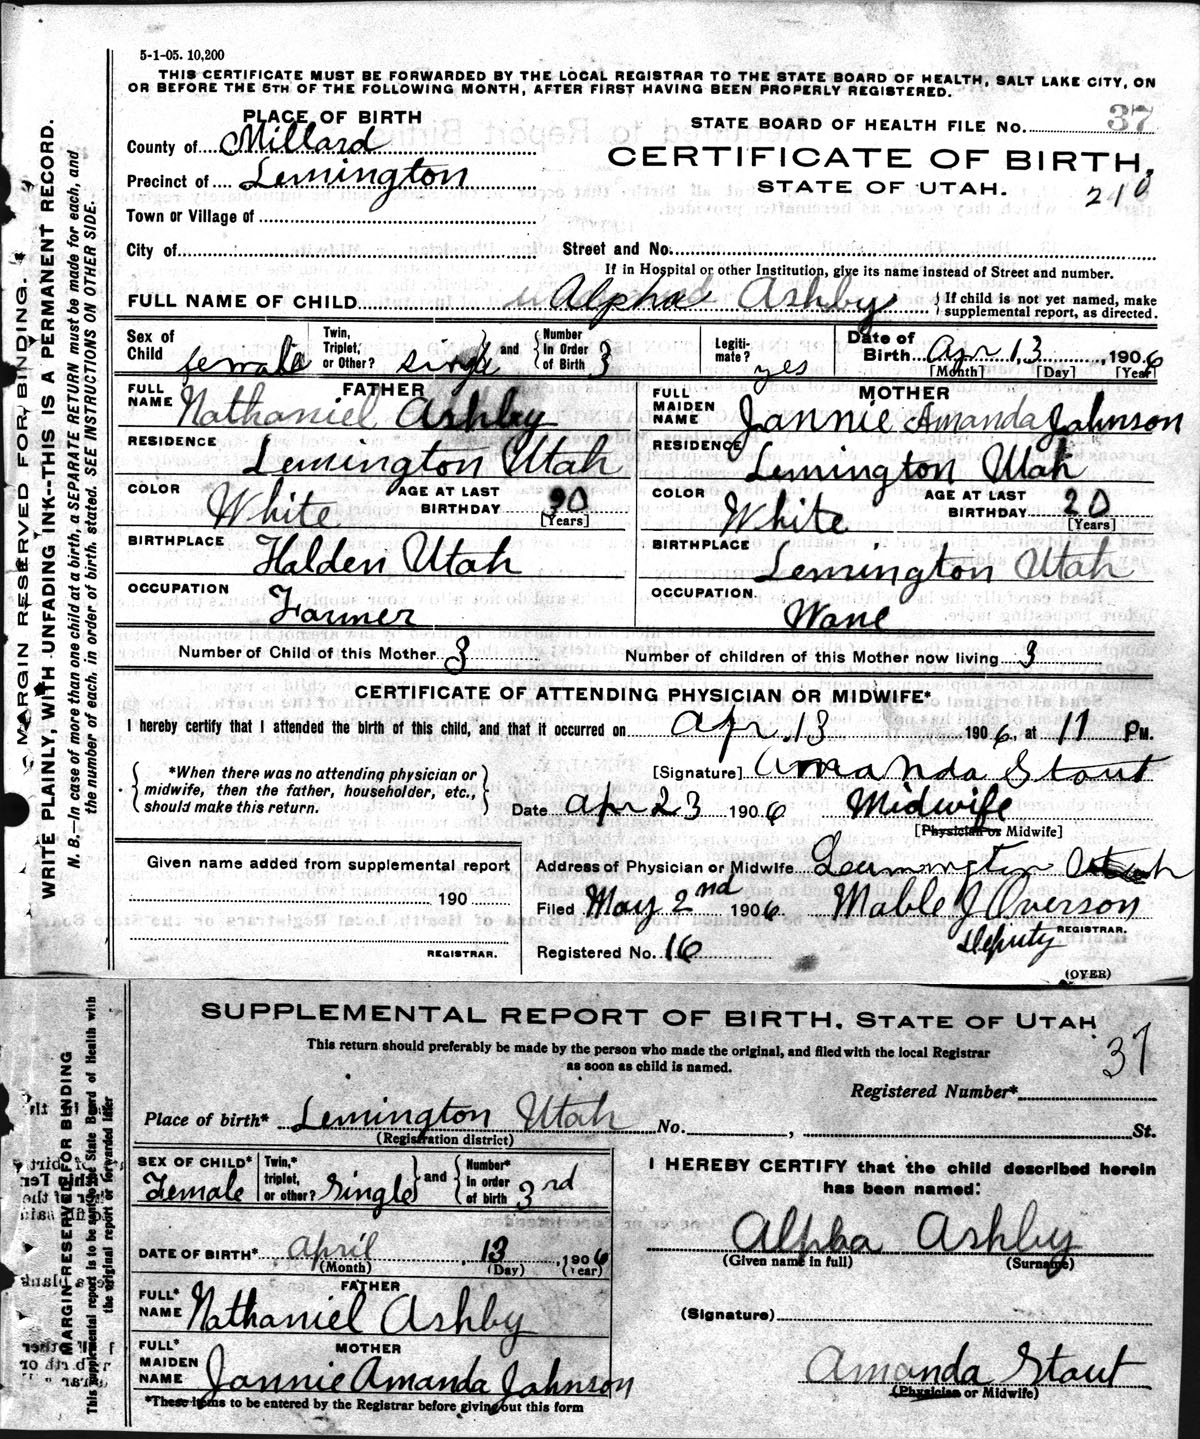 5-1-05. 10,200
THIS CERTIFICATE MUST BE FORWARDED BY THE LOCAL REGISTRAR TO THE STATE BOARD OF HEALTH, SALT LAKE CITY, ON
OR BEFORE THE 5TH OF THE FOLLOWING MONTH, AFTER FIRST HAVING BEEN PROPERLY REGISTERED.
PLACE OF BIRTH
STATE BOARD OF HEALTH FILE No. 37
County of Millard
CERTIFICATE OF BIRTH,
Precinct of Lemington
STATE OF UTAH.
210
Town or Village of
City of
Street and No.
If in Hospital or other Institution, give its name instead of Street and number.
FULL NAME OF CHILD Alpha Ashby
If child is not yet named, make
supplemental report, as directed.
Sex of Child female
Twin, Triplet, or Other? single and Number In Order of Birth 3
Legiti-mate? yes
Date of Birth Apr 13, 1906
[Month] [Day] [Year]
FATHER
FULL NAME Nathaniel Ashby
RESIDENCE Lemington Utah
COLOR White AGE AT LAST BIRTHDAY 30
[Years]
BIRTHPLACE Holden Utah
OCCUPATION Farmer
MOTHER
FULL MAIDEN NAME Jannie Amanda Johnson
RESIDENCE Lemington Utah
COLOR White AGE AT LAST BIRTHDAY 20
[Years]
BIRTHPLACE Lemington Utah
OCCUPATION
Number of Child of this Mother 3 Number of children of this Mother now living 3
CERTIFICATE OF ATTENDING PHYSICIAN OR MIDWIFE*
I hereby certify that I attended the birth of this child, and that it occurred on Apr. 13 1906, at 11 P M.
*When there was no attending physician or
midwife, then the father, householder, etc.,
should make this return.
[Signature] Amanda Stout
Date Apr 23 1906 Midwife
[Physician or Midwife]
Given name added from supplemental report
190
REGISTRAR.
Address of Physician or Midwife Leamington Utah
Filed May 2nd 1906. Mable J Overson
REGISTRAR.
Deputy
Registered No. 16
(OVER)
MARGIN RESERVED FOR BINDING.
WRITE PLAINLY, WITH UNFADING INK--THIS IS A PERMANENT RECORD.
N. B.—In case of more than one child at a birth, a SEPARATE RETURN must be made for each, and
the number of each, in order of birth, stated. SEE INSTRUCTIONS ON OTHER SIDE.
SUPPLEMENTAL REPORT OF BIRTH, STATE OF UTAH
This return should preferably be made by the person who made the original, and filed with the local Registrar
as soon as child is named.
37
Registered Number*
Place of birth* Lemington Utah No. , St.
(Registration district)
SEX OF CHILD* Female
Twin,* triplet, or other? Single and Number* in order of birth 3rd
DATE OF BIRTH* April 13, 1906
(Month) (Day) (Year)
FATHER
FULL* NAME Nathaniel Ashby
MOTHER
FULL* MAIDEN NAME Jannie Amanda Johnson
*These items to be entered by the Registrar before giving out this form
I HEREBY CERTIFY that the child described herein
has been named:
Alpha Ashby
(Given name in full) (Surname)
(Signature)
Amanda Stout
(Physician or Midwife)
MARGIN RESERVED FOR BINDING
This supplemental report is to be sent to the State Board of Health with
the original report or forwarded later